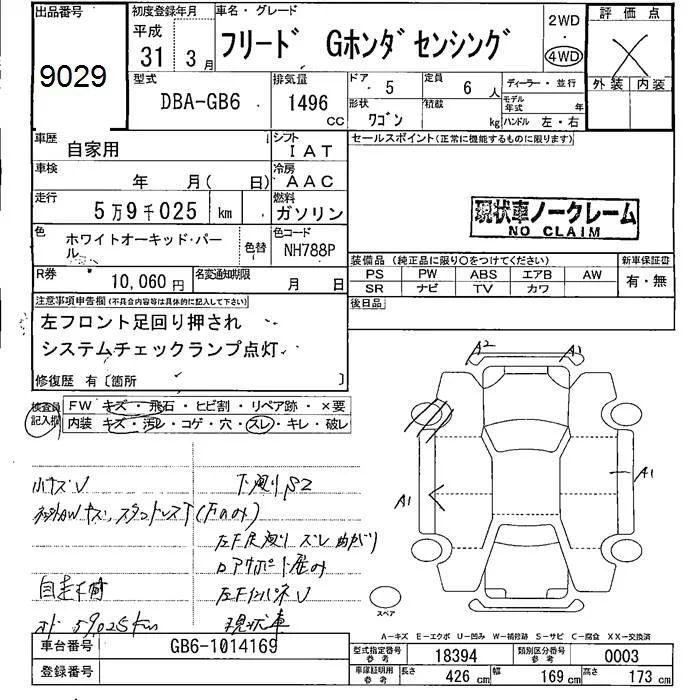 出品番号
9029
初度登録年月
平成
31 3月
車名・グレード
フリード Gホンダセンシング
2WD
4WD
評価点
X
外装 内装
型式
DBA-GB6
排気量
1496
CC
ドア
5
定員
6 人
ディーラー・並行
形状
ワゴン
積載
kg
モデル年式 年
ハンドル 左・右
車歴
自家用
シフト
IAT
セールスポイント(正常に機能するものに限ります)
車検
年 月( 日)
冷房
AAC
走行
5万9千025 km
燃料
ガソリン
現状車ノークレーム
NO CLAIM
色
ホワイトオーキッド・パール
色替
色コード
NH788P
装備品 (純正品に限り○をつけてください)
新車保証書
PS PW ABS エアB AW
SR ナビ TV カワ
有・無
R券
10,060円
名変通知期限
月 日
後日品
注意事項申告欄(不具合内容等は具体的に記入して下さい)
左フロント足回り押され
システムチェックランプ点灯
修復歴 有〔箇所 〕
検査員記入欄
FW キズ・飛石・ヒビ割・リペア跡・×要
内装 キズ・汚レ・コゲ・穴・スレ・キレ・破レ
A2 A1
A1
A1
スペア
小キズV
下廻りS2
自走不可
現状車
59025km
A-キズ E-エクボ U-凹み W-補修跡 S-サビ C-腐食 XX-交換済
車台番号
GB6-1014169
型式指定番号
参考
18394
類別区分番号
参考
0003
登録番号
車庫証明用
参考
長さ
426 cm
幅
169 cm
高さ
173 cm